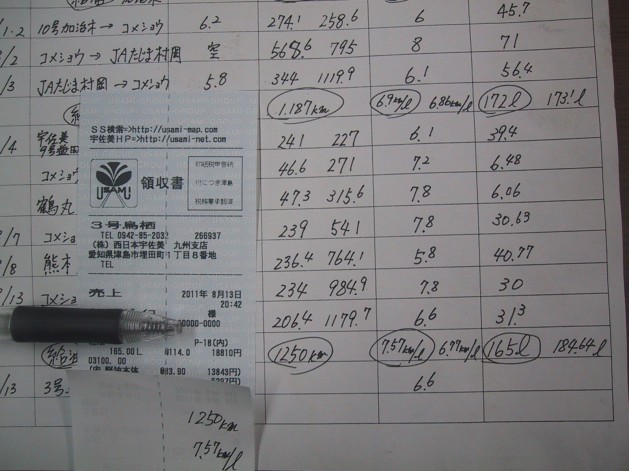 1・2 10号加治木→コメショウ 6.2 274.1 258.6 6 45.7
/2 コメショウ→JAたじま村岡 空 568.6 795 8 71
/3 JAたじま村岡→コメショウ 5.8 344 1119.9 6.1 56.4
1.187km 6.9km/l 6.86km/l 172l 173.1l
/4 宇佐美 241 227 6.1 39.4
コメショウ 46.6 271 7.2 6.48
鶴丸 47.3 315.6 7.8 6.06
/7 コメショ 239 541 7.8 30.63
/8 熊本 236.4 764.1 5.8 40.77
/13 コメショ 234 984.9 7.8 30
206.4 1179.7 6.6 31.3
給油 1250km 7.57km/l 6.77km/l 165l 184.64l
/13 3号 6.6
SS検索=>http://usami-map.com
宇佐美HP=>http://usami-net.com
USAMI 領収書
印紙税申告納
付につき津島
税務署承認済
3号鳥栖
TEL 0942-85-2032 266937
(株)西日本宇佐美 九州支店
愛知県津島市埋田町1丁目8番地
TEL
売上 2011年 8月13日
20:42
様
0000-0000
P-18(内)
165.00L @114.0 18810円
03100. 00
@83.90 13843円)
1250km
7.57km/l